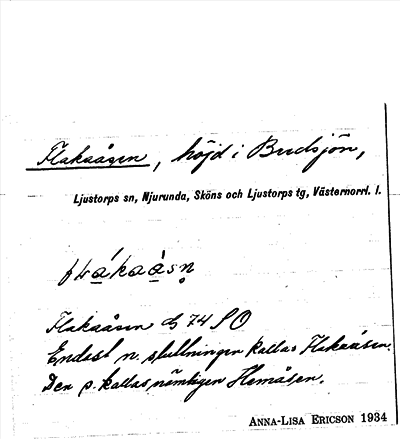 Flakaåsen, höjd i Budsjön,
Ljustorps sn, Njurunda, Sköns och Ljustorps tg, Västernorrl. l.
Flakaåsen 74 SO
Endast n. sluttningen kallas Flakaåsen.
Den s. kallas nämligen Hemåsen.
ANNA-LISA ERICSON 1934